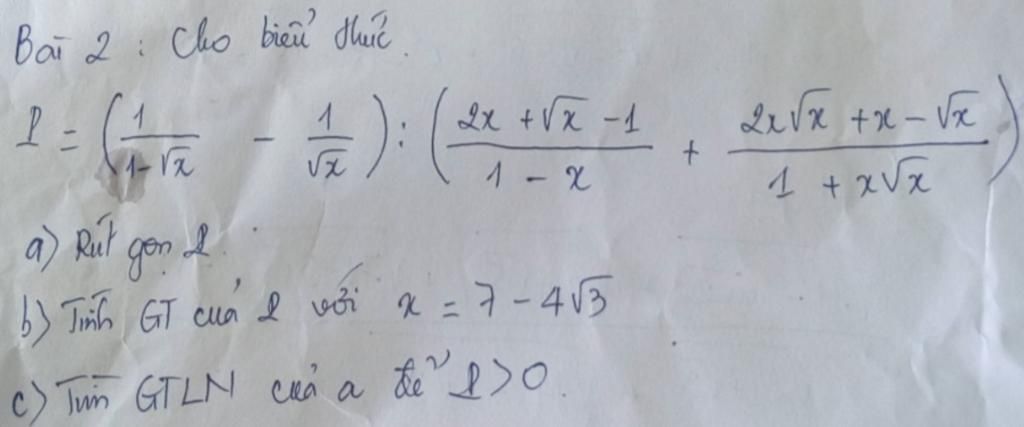 Bài 2 : Cho biểu thức.
P = (1/(1-√x) - 1/√x) : ((2x + √x - 1)/(1 - x) + (2x√x + x - √x)/(1 + x√x))
a) Rút gọn P.
b) Tính GT của P với x = 7 - 4√3
c) Tìm GTLN của a để P > 0.